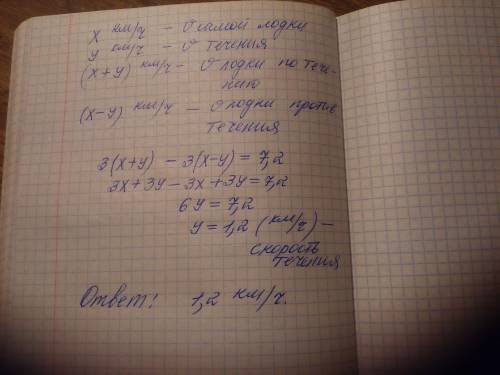 x км/ч – v самой лодки
y км/ч – v течения
(x+y) км/ч – v лодки по тече-
нию
(x-y) км/ч – v лодки против
течения
3(x+y) – 3(x-y) = 7,2
3x+3y-3x+3y=7,2
6y = 7,2
y = 1,2 (км/ч) –
скорость
течения
Ответ: 1,2 км/ч.